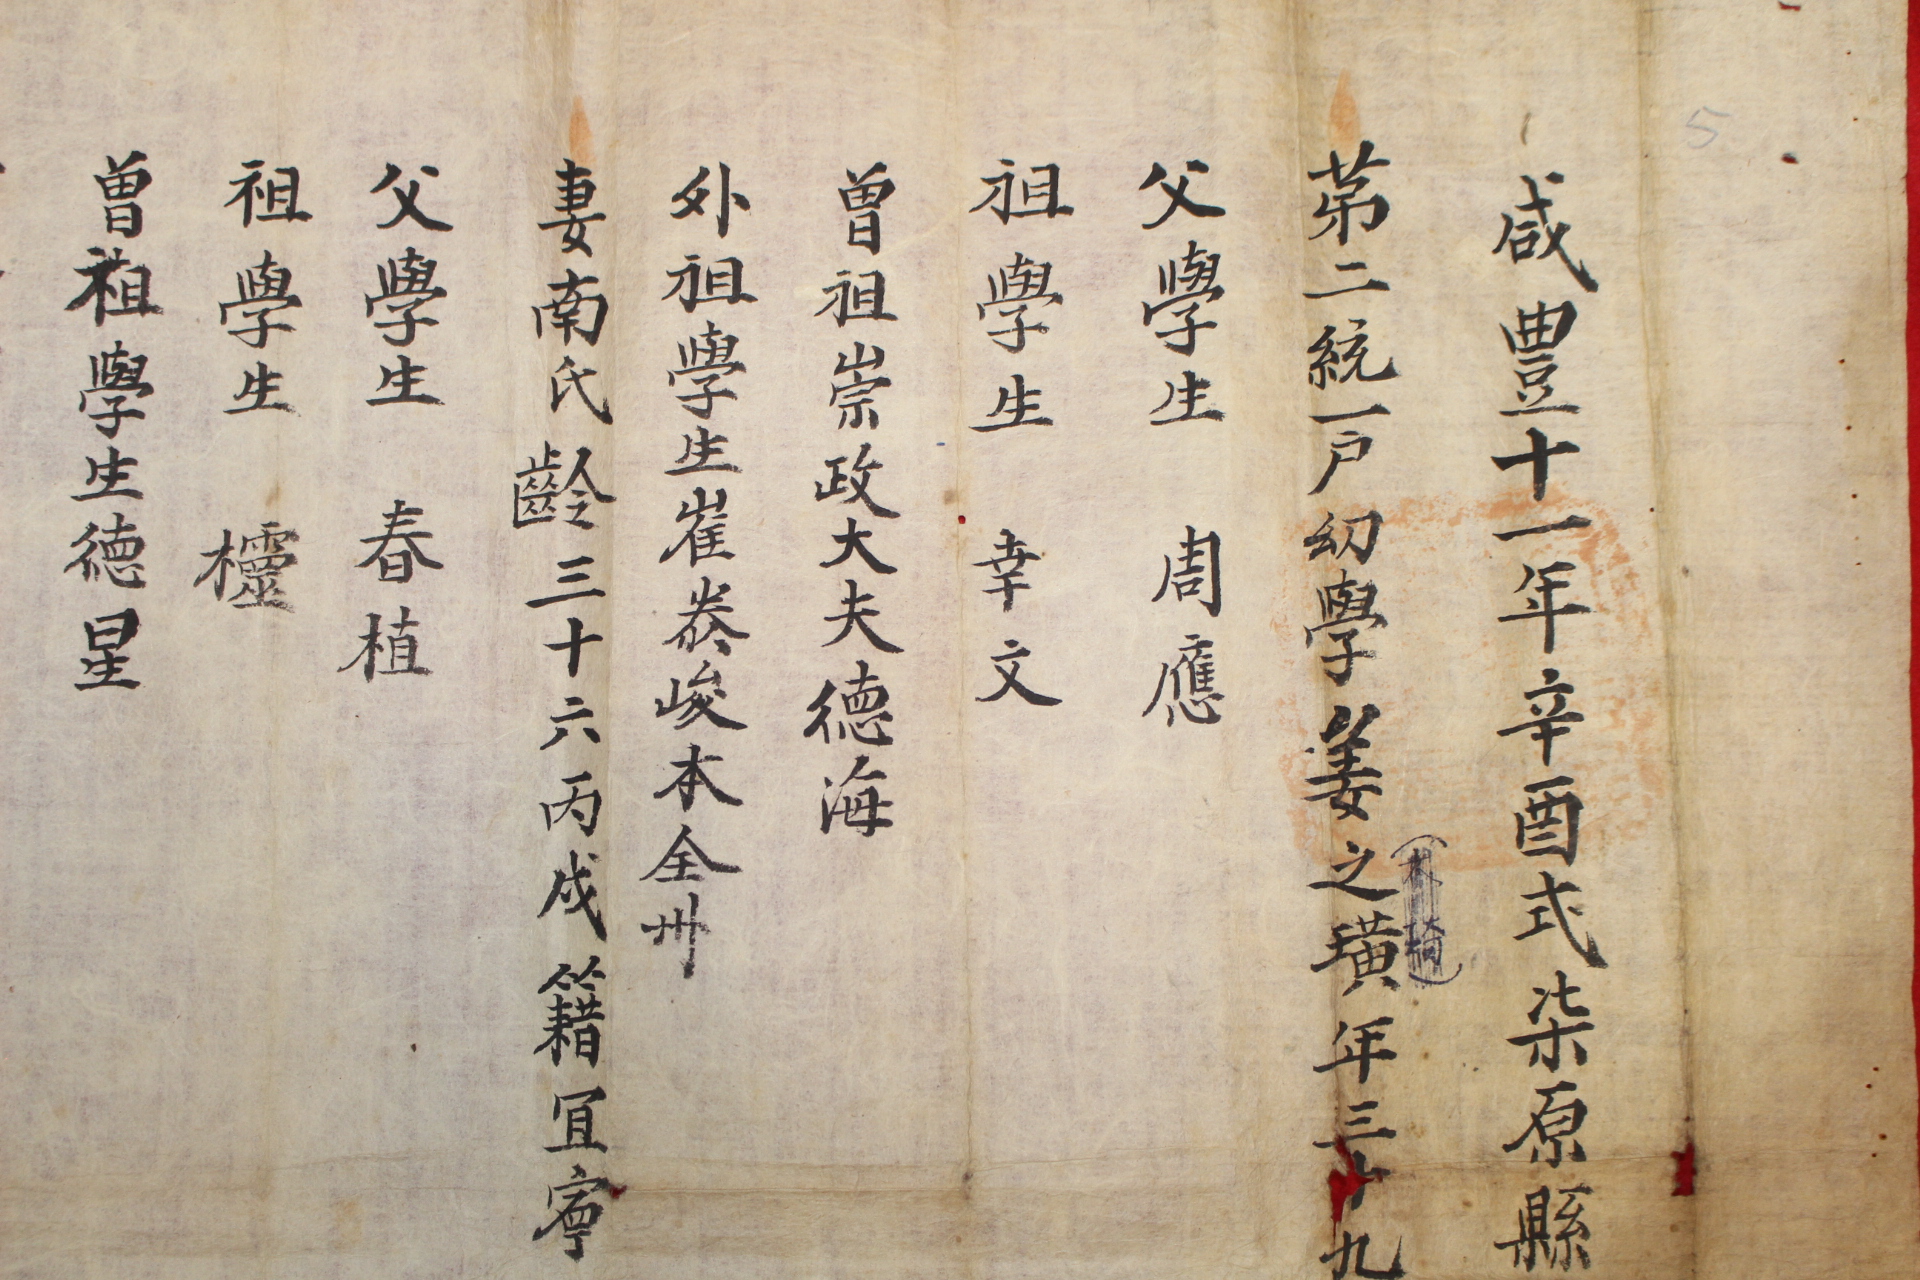 咸豊十一年辛酉式柒原縣
第二統一戶幼學姜之璜年三十九
父學生 周應
祖學生 幸文
曽祖崇政大夫德海
外祖學生崔泰峻本全州
妻南氏齡三十六丙戌籍冝寧
父學生 春植
祖學生
曽祖學生德星
5